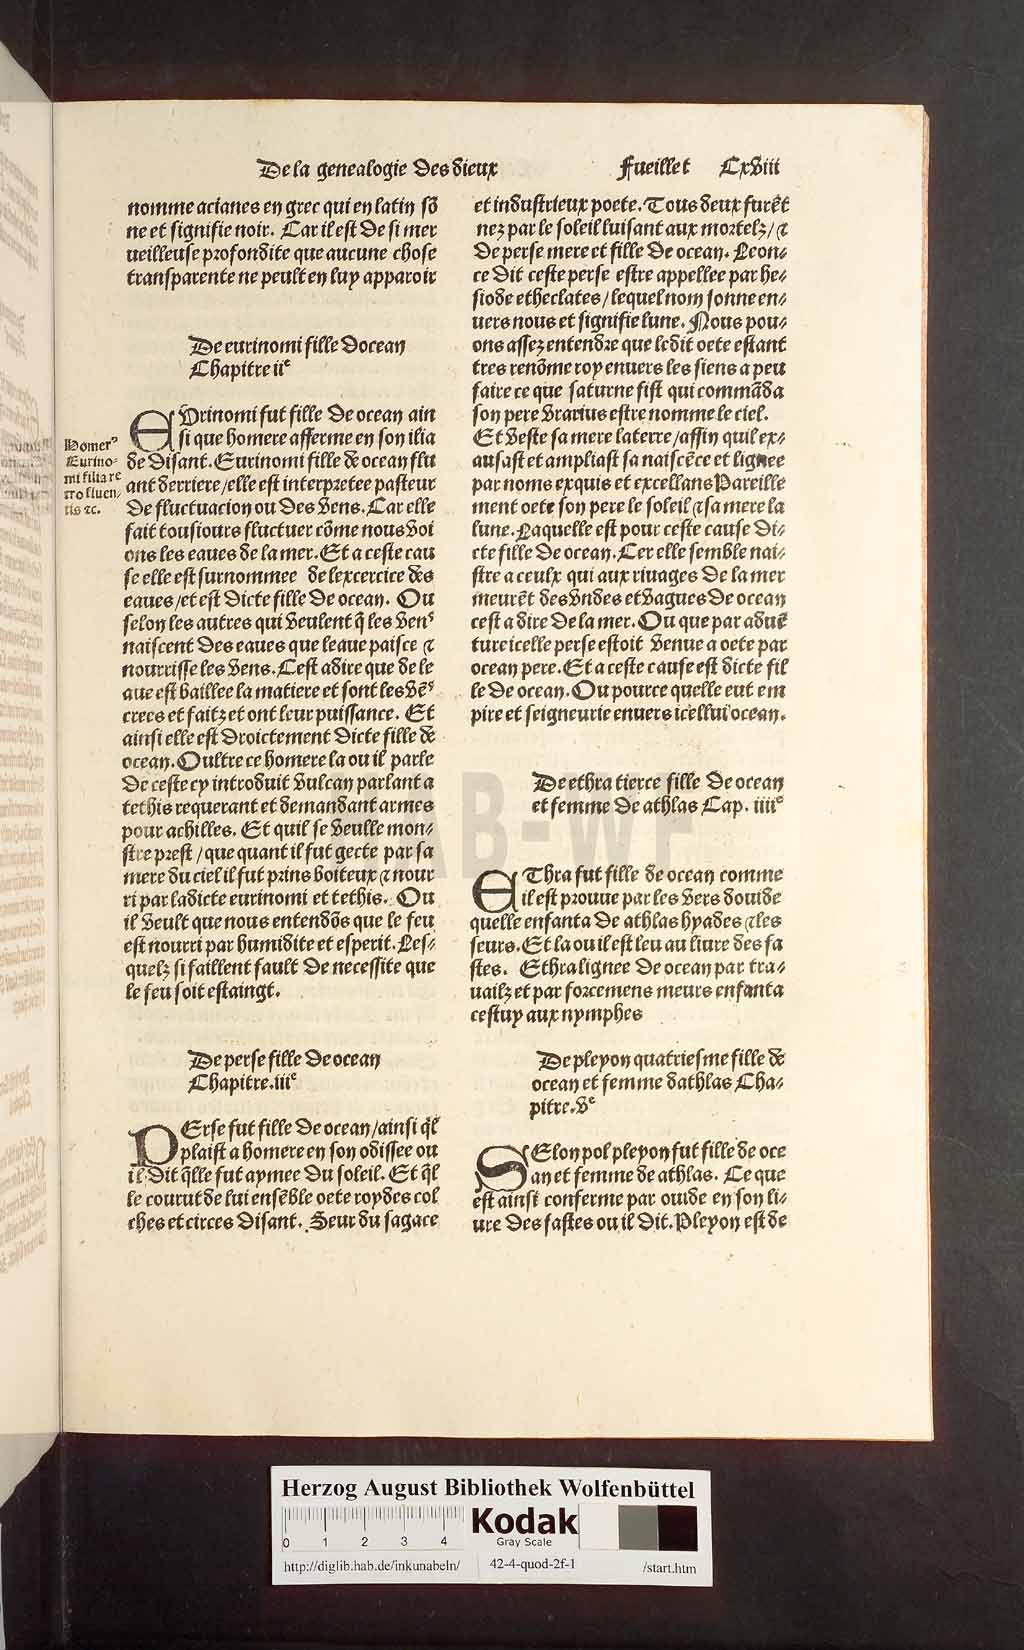 De la genealogie des dieux Fueillet CxViii
nomme acianes en grec qui en latin sõ
ne et signifie noir. Car il est de si mer
ueilleuse profondite que aucune chose
transparente ne peult en luy apparoir
De eurinomi fille docean
Chapitre iiᵉ
EVrinomi fut fille de ocean ain
si que homere afferme en son ilia
de disant. Eurinomi fille de ocean flu
ant derriere/elle est interpretee pasteur
de fluctuacion ou des vens. Car elle
fait tousiours fluctuer cõme nous voi
ons les eaues de la mer. Et a ceste cau
se elle est surnommee de lexcercice des
eaues/et est dicte fille de ocean. Ou
selon les autres qui veulent q̃ les venˢ
naiscent des eaues que leaue paisce ⁊
nourrisse les vens. Cest adire que de le
aue est baillee la matiere et sont les vẽˢ
crees et faitz et ont leur puissance. Et
ainsi elle est droictement dicte fille de
ocean. Oultre ce homere la ou il parle
de ceste cy introduit vulcan parlant a
tethis requerant et demandant armes
pour achilles. Et quil se veulle mon⸗
stre prest/que quant il fut gecte par sa
mere du ciel il fut prins boiteux ⁊ nour
ri par ladicte eurinomi et tethis. Ou
il veult que nous entendõs que le feu
est nourri par humidite et esperit. Les⸗
quelz si faillent fault de necessite que
le feu soit estaingt.
De perse fille de ocean
Chapitre.iiiᵉ
PErse fut fille de ocean/ainsi q̃l
plaist a homere en son odissee ou
il dit q̃lle fut aymee du soleil. Et q̃l
le courut de lui ensẽble oete roy des col
ches et circes disant. Seur du sagace
Homerꝰ
Eurino⸗
mi filia re
tro fluen⸗
tis ⁊c.
et industrieux poete. Tous deux furẽt
nez par le soleil luisant aux mortelz/⁊
de perse mere et fille de ocean. Leon⸗
ce dit ceste perse estre appellee par he⸗
siode etheclates/lequel nom sonne en⸗
uers nous et signifie lune. Nous pou⸗
ons assez entendre que ledit oete estant
tres renõme roy enuers les siens a peu
faire ce que saturne fist qui commãda
son pere vrarius estre nomme le ciel.
Et veste sa mere la terre/affin quil ex⸗
ausast et ampliast sa naiscẽce et lignee
par noms exquis et excellans Pareille
ment oete son pere le soleil ⁊ sa mere la
lune. Laquelle est pour ceste cause di⸗
cte fille de ocean. Cer elle semble nai⸗
stre a ceulx qui aux riuages de la mer
meurẽt des vndes et vagues de ocean
cest a dire de la mer. Ou que par aduẽ
ture icelle perse estoit venue a oete par
ocean pere. Et a ceste cause est dicte fil
le de ocean. Ou pource quelle eut em
pire et seigneurie enuers icellui ocean.
De ethra tierce fille de ocean
et femme de athlas Cap. iiiiᵉ
EThra fut fille de ocean comme
il est prouue par les vers douide
quelle enfanta de athlas hyades ⁊ les
seurs. Et la ou il est leu au liure des fa
stes. Ethra lignee de ocean par tra⸗
uailz et par forcemens meurs enfanta
cestuy aux nymphes
De pleyon quatriesme fille de
ocean et femme dathlas Cha⸗
pitre.vᵉ
SElon pol pleyon fut fille de oce
an et femme de athlas. Ce que
est ainsi conferme par ouide en son li⸗
ure des fastes ou il dit. Pleyon est de
HAB-WF
Herzog August Bibliothek Wolfenbüttel
0 1 2 3 4
Kodak
Gray Scale
http://diglib.hab.de/inkunabeln/ 42-4-quod-2f-1 /start.htm